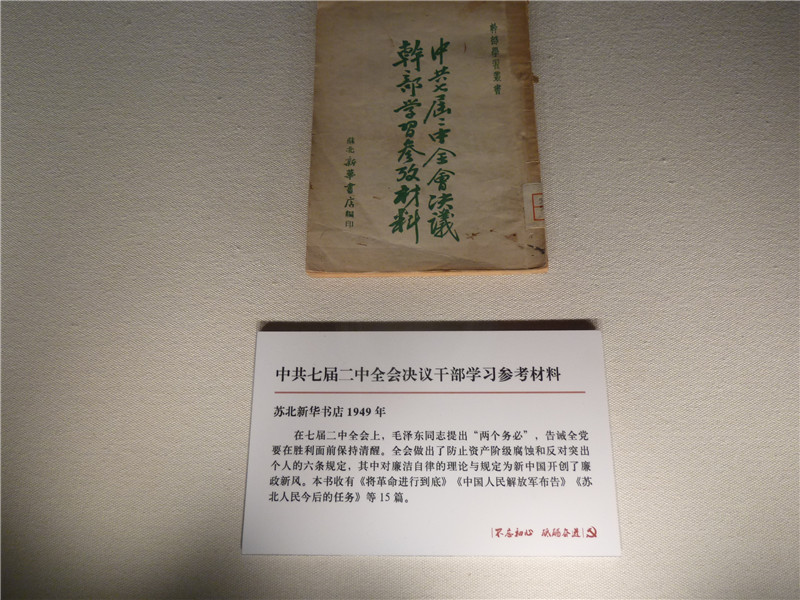 幹部學習叢書
中共七届二中全會决議
幹部学習參攷材料
蘇北新華書店編印
中共七届二中全会决议干部学习参考材料
苏北新华书店 1949 年
在七届二中全会上，毛泽东同志提出“两个务必”，告诫全党
要在胜利面前保持清醒。全会做出了防止资产阶级腐蚀和反对突出
个人的六条规定，其中对廉洁自律的理论与规定为新中国开创了廉
政新风。本书收有《将革命进行到底》《中国人民解放军布告》《苏
北人民今后的任务》等 15 篇。
不忘初心 砥砺奋进